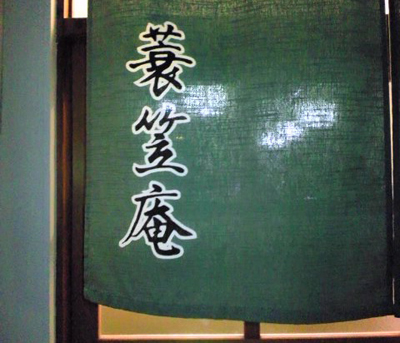 蓑笠庵